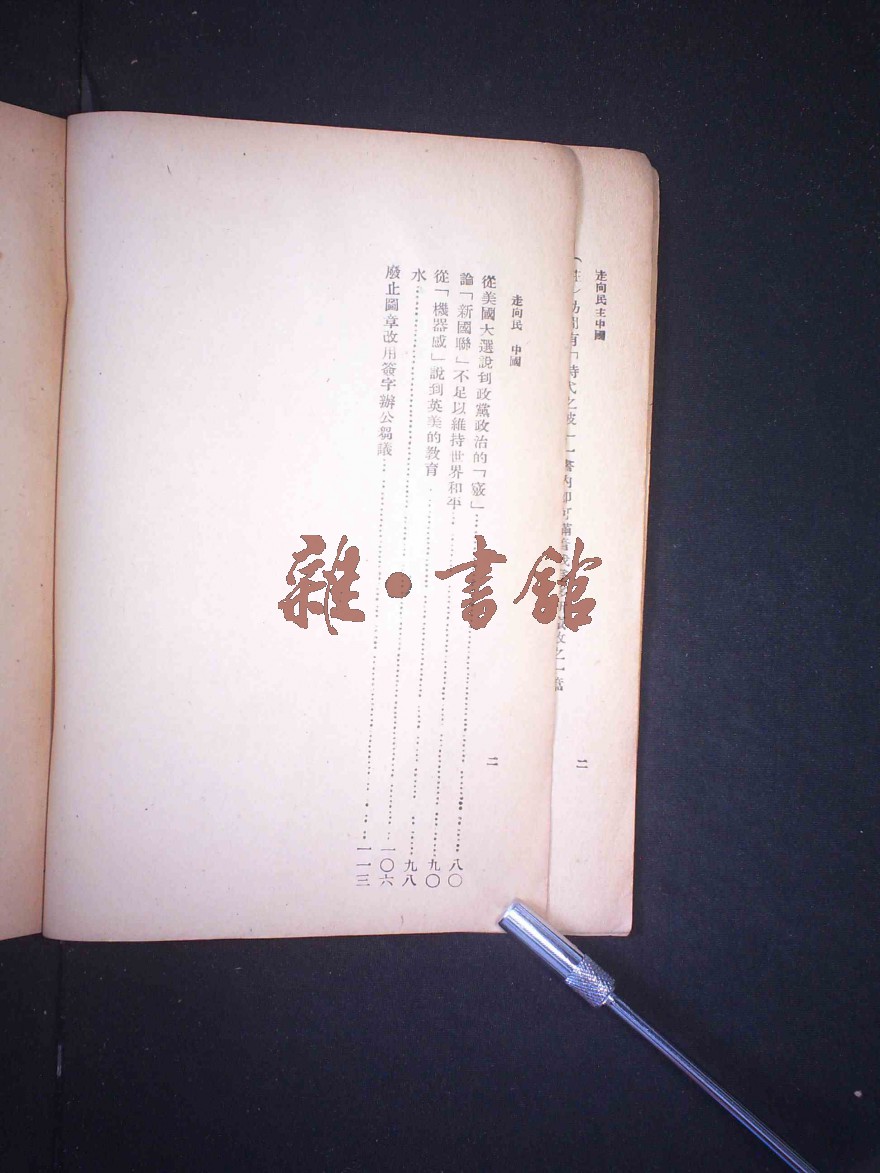 走向民主中國
二
走向民 中國
從美國大選說到政黨政治的「竅」……八〇
論「新國聯」不足以維持世界和平……九〇
從「機器感」說到英美的教育……九八
水……一〇六
廢止圖章改用簽字辦公芻議……一一三
二
雜·書館